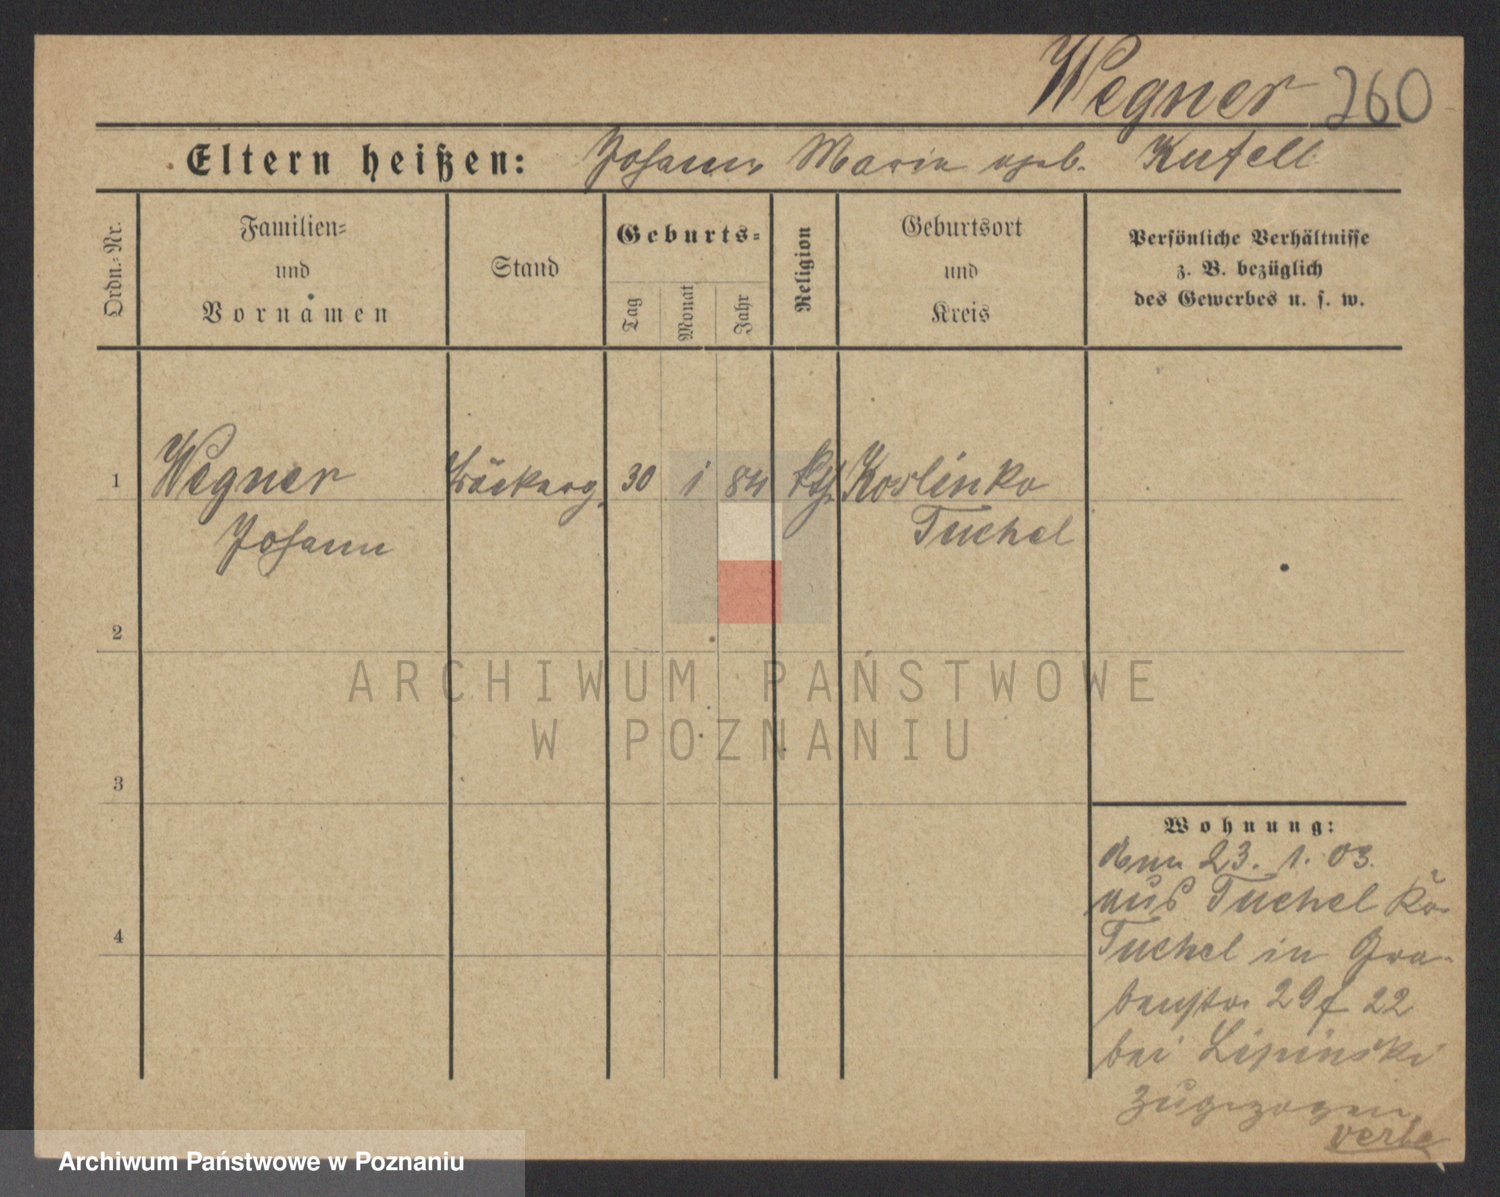 Wegner 260
Eltern heißen: Johann Maria geb. Kufell
Ordn.-Nr.
Familien-
und
Vornamen
Stand
Geburts-
Tag
Monat
Jahr
Religion
Geburtsort
und
Kreis
Persönliche Verhältnisse
z. B. bezüglich
des Gewerbes u. s. w.
1 Wegner Bäckerg. 30 1 84 kth. Koslinka
Johann Tuchel
2
3
4
Wohnung:
23. 1. 03.
aus Tuchel
Tuchel in Gra-
benstr. 29 22
bei Lipinski
zugezogen
ARCHIWUM PAŃSTWOWE
W POZNANIU
Archiwum Państwowe w Poznaniu